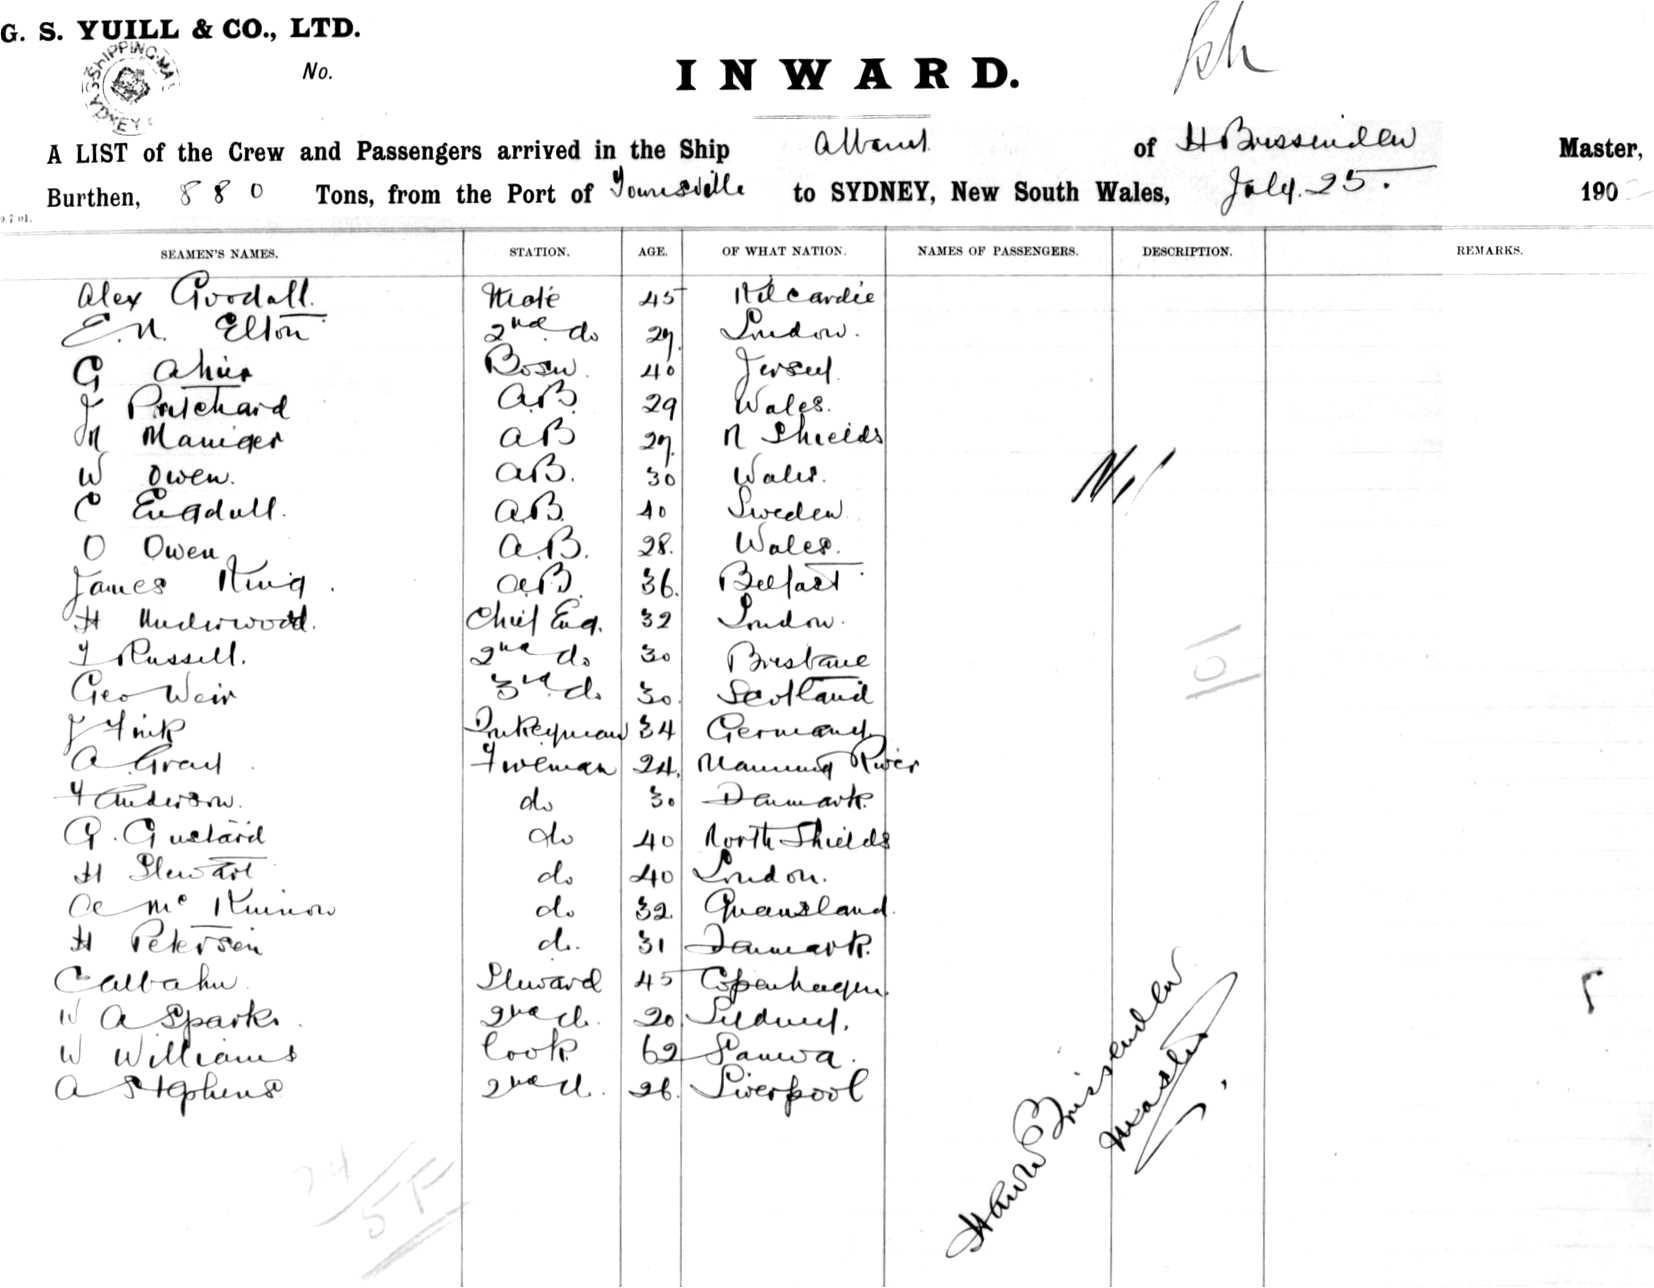 G. S. YUILL & CO., LTD.
SHIPPING MA
SYDNEY
No.
INWARD.
A LIST of the Crew and Passengers arrived in the Ship Albany of H Brissenden Master,
Burthen, 880 Tons, from the Port of Townsville to SYDNEY, New South Wales, July. 25. 190
SEAMEN'S NAMES. STATION. AGE. OF WHAT NATION. NAMES OF PASSENGERS. DESCRIPTION. REMARKS.
Alex Goodall. Mate 45
E. N. Elton 2nd do 27. London.
G Bosn. 40 Jersey
J Pritchard A.B. 29 Wales.
Maniger AB 27. N Shields
W Owen. AB. 30 Wales.
C Engdull. A.B. 40 Sweden
O Owen A.B. 28. Wales.
James King. A.B. 36. Belfast
H Underwood. Chief Eng. 32 London.
Russell. 2nd do 30 Brisbane
Geo Weir 3rd do 30. Scotland
J Fink Dnkeyman 34 Germany
A Gray Fireman 24. Manning River
Anderson. do 30 Denmark
G. Gustard do 40 North Shields
H Stewart do 40 London.
Mc Kinnon do 32. Queensland.
H Petersen do. 31 Denmark.
Steward 45 Copenhagen
W A Sparks. 2nd d. 20 Sydney.
W Williams Cook 62 Samoa.
A Stephens 2nd d. 26. Liverpool
Nil
Brissenden
Master